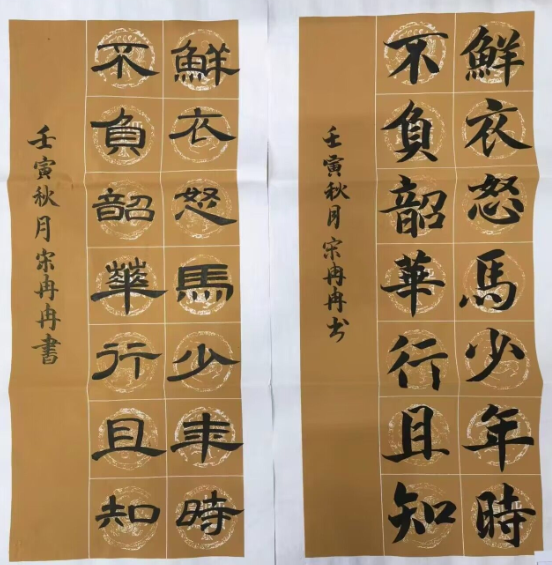 鮮衣怒馬少年時
不負韶華行且知
壬寅秋月宗冉冉书
鮮衣怒馬少年時
不負韶華行且知
壬寅秋月宗冉冉書